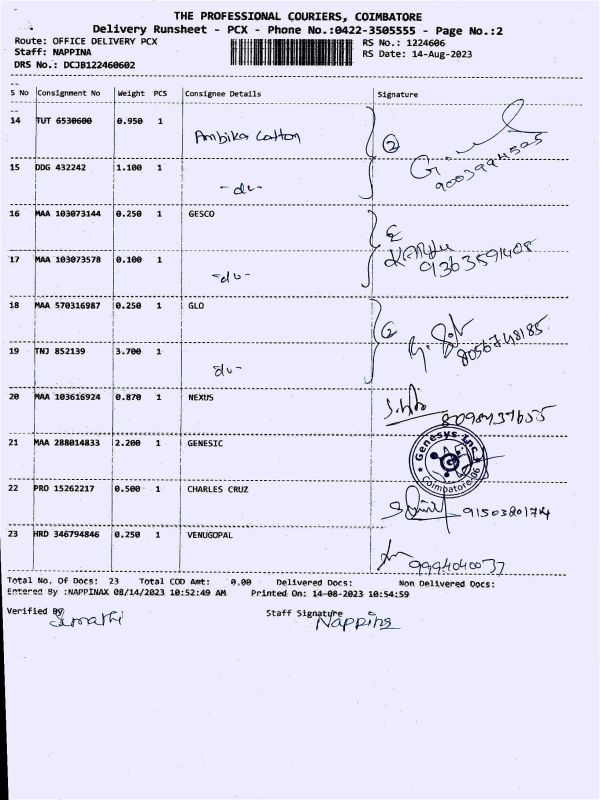 THE PROFESSIONAL COURIERS, COIMBATORE
Delivery Runsheet - PCX - Phone No.:0422-3505555 - Page No.:2
Route: OFFICE DELIVERY PCX RS No.: 1224606
Staff: NAPPINA RS Date: 14-Aug-2023
DRS No.: DCJB122460602
S No Consignment No Weight PCS Consignee Details Signature
14 TUT 6530600 0.950 1 Ambika Cotton
2
9003994595
15 DDG 432242 1.100 1 -do-
16 MAA 103073144 0.250 1 GESCO
17 MAA 103073578 0.100 1 -do-
9363591408
18 MAA 570316987 0.250 1 GLO
8056748185
19 TNJ 852139 3.700 1 do-
20 MAA 103616924 0.870 1 NEXUS
8098937655
21 MAA 288014833 2.200 1 GENESIC
Genesys Inc
Coimbatore-06
22 PRO 15262217 0.500 1 CHARLES CRUZ
9150380174
23 HRD 346794846 0.250 1 VENUGOPAL
9994040037
Total No. Of Docs: 23 Total COD Amt: 0.00 Delivered Docs: Non Delivered Docs:
Entered By :NAPPINAX 08/14/2023 10:52:49 AM Printed On: 14-08-2023 10:54:59
Verified By Staff Signature
Nappina